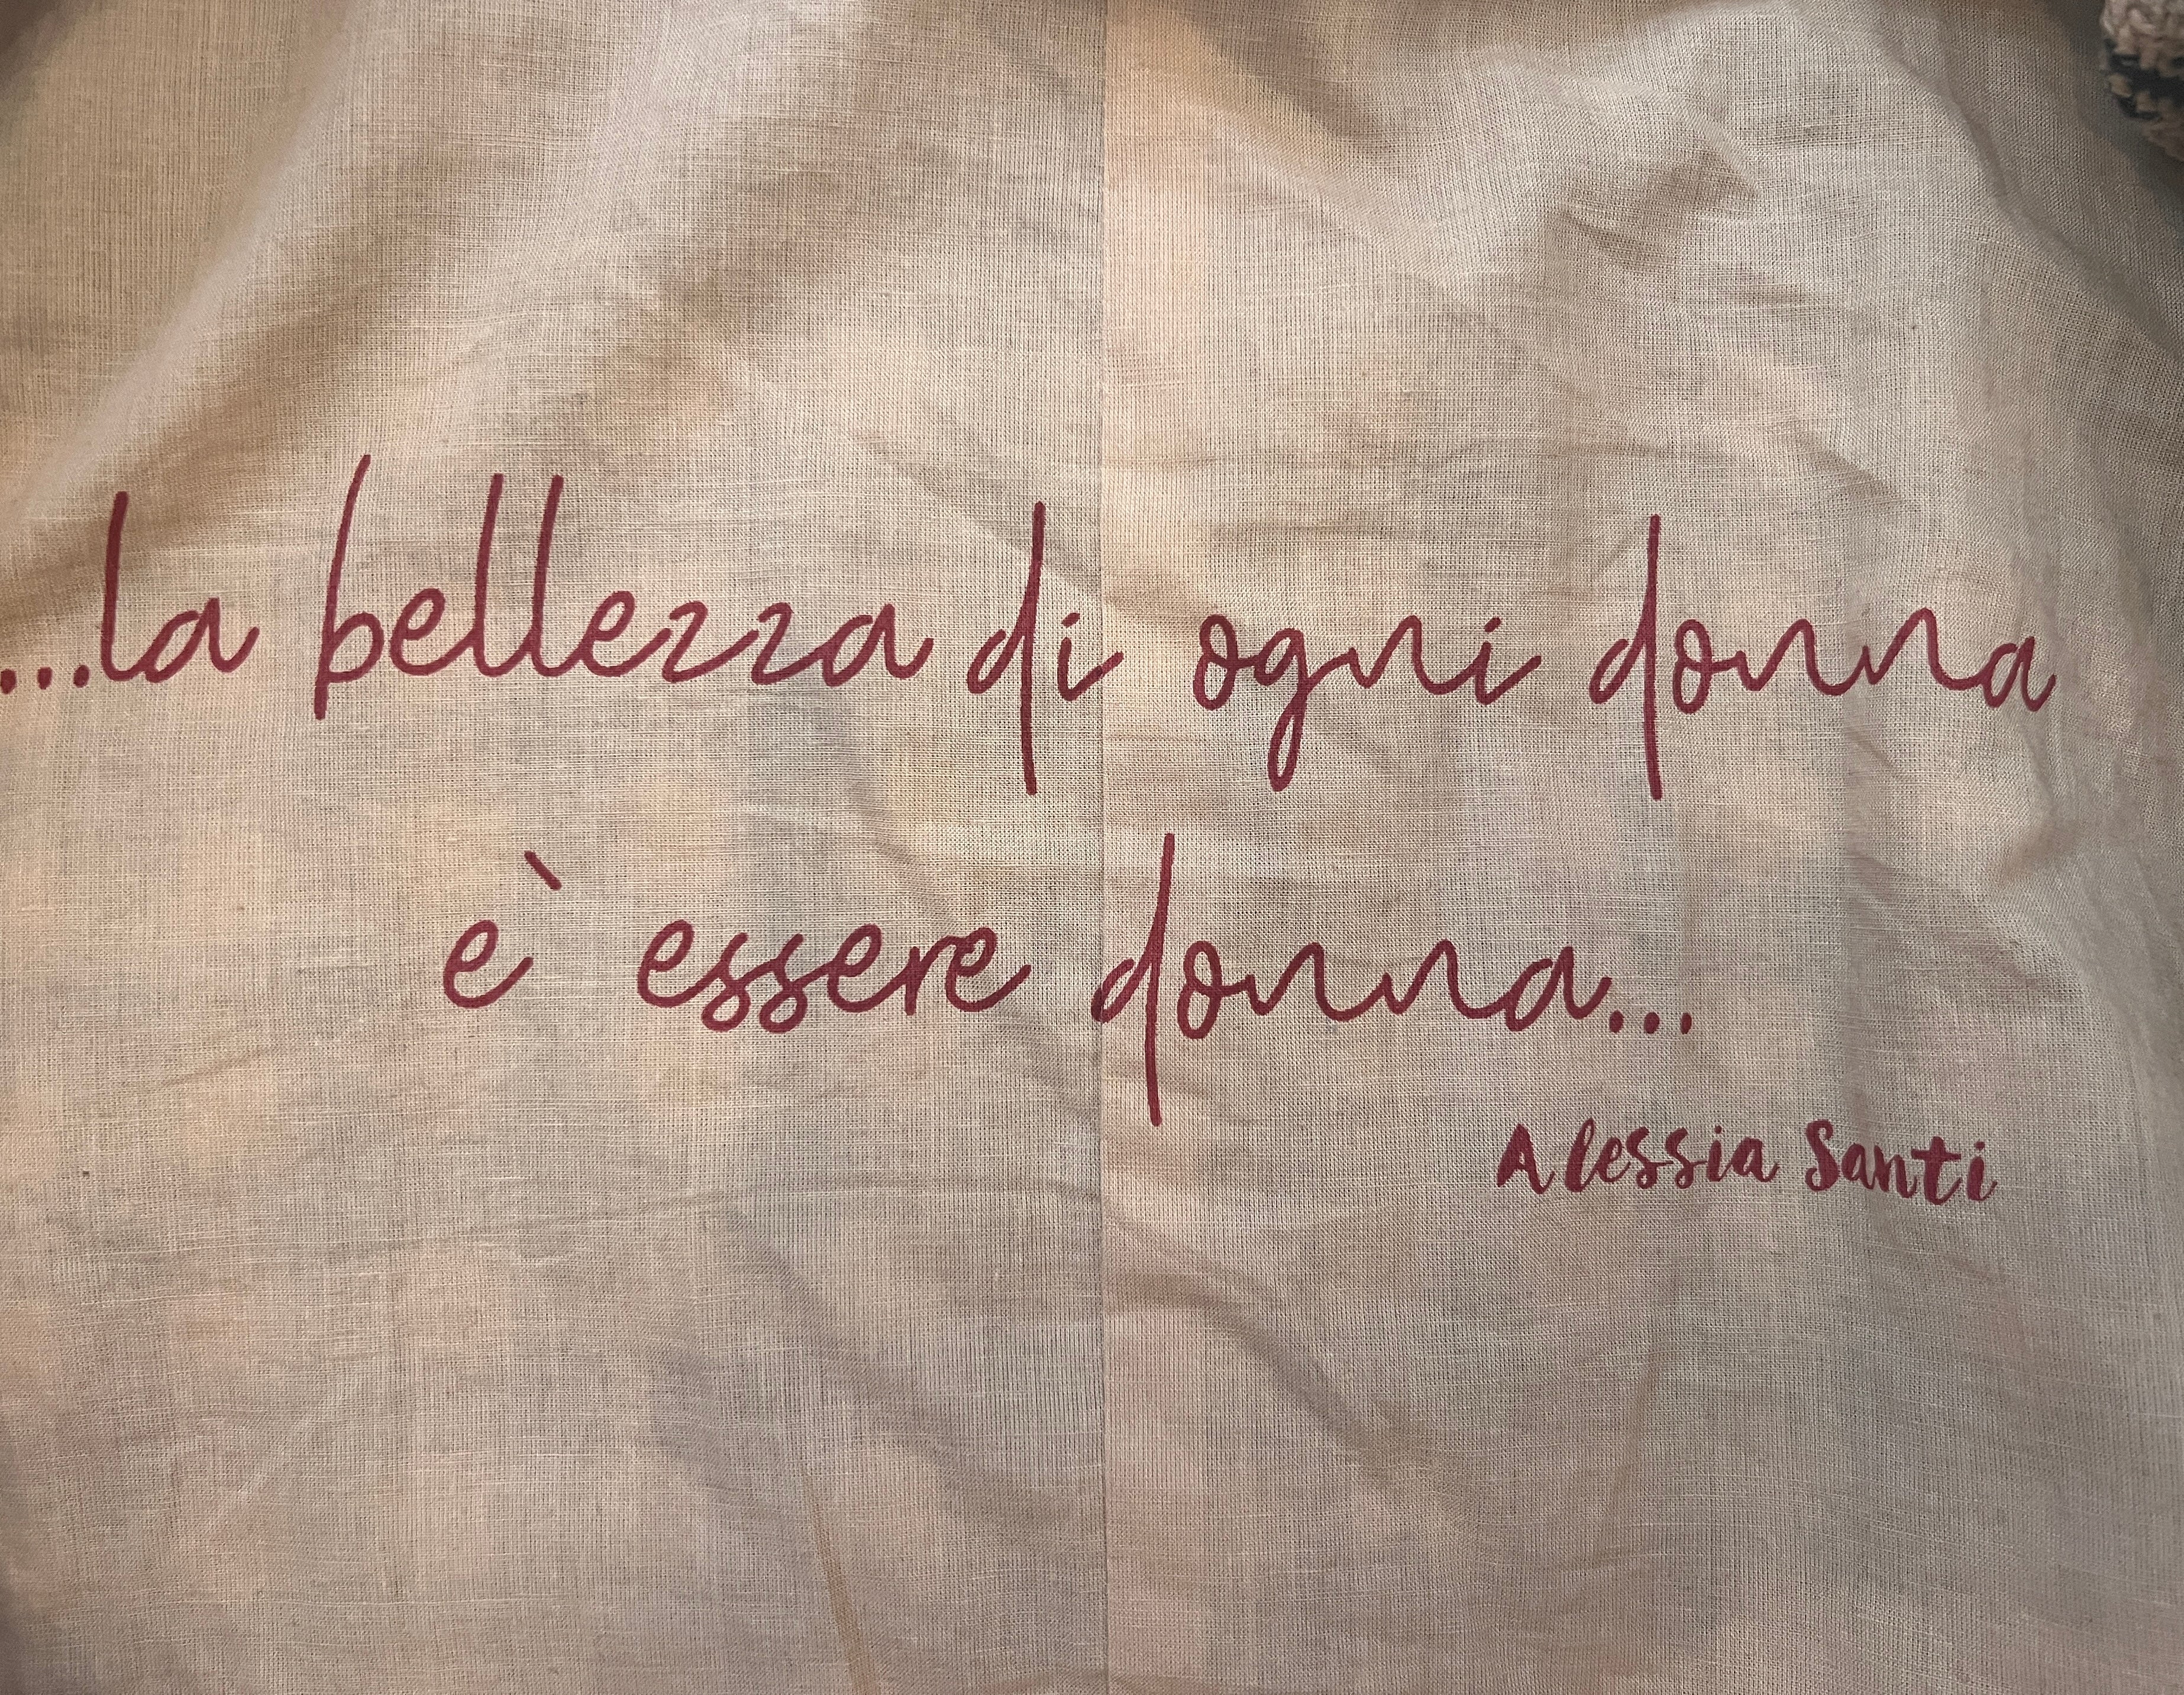 ...la bellezza di ogni donna
è essere donna...
Alessia Santi